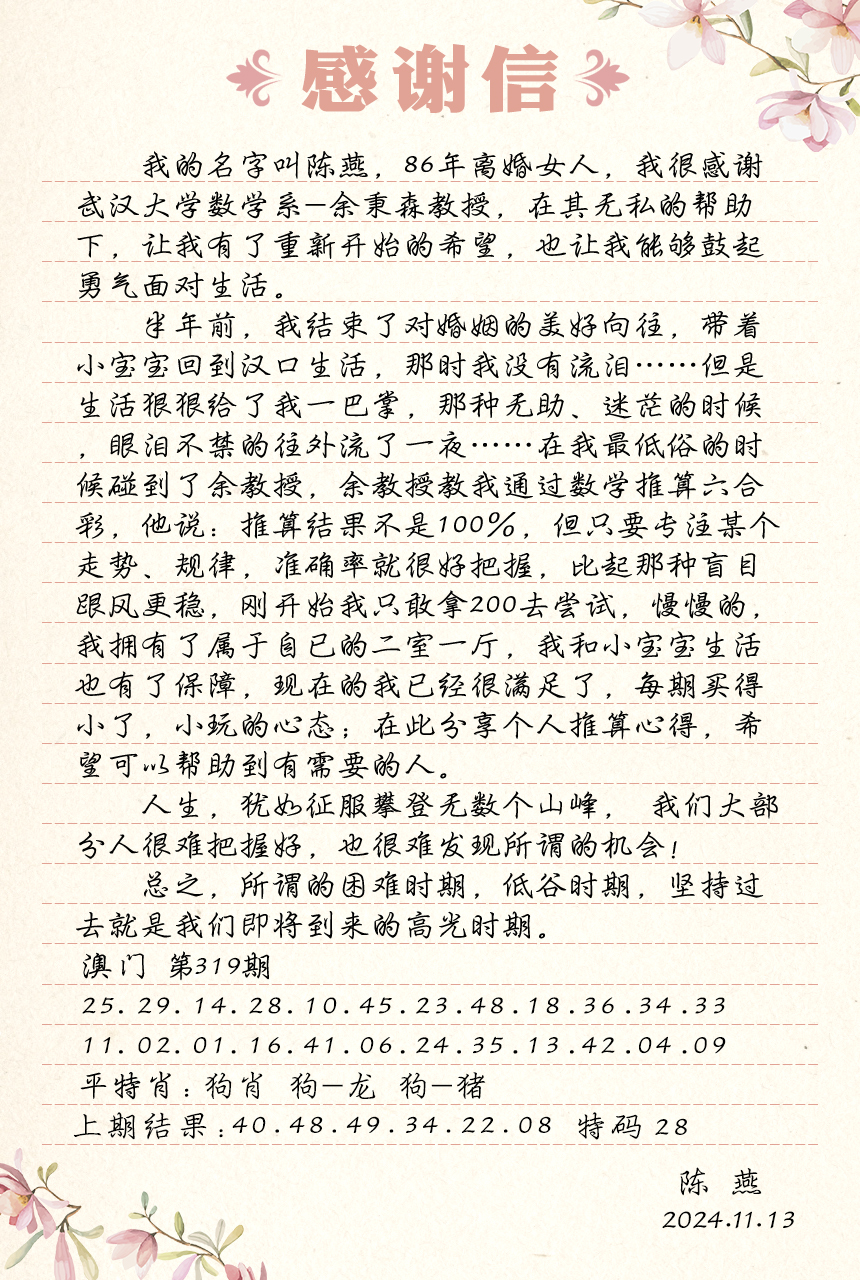 感谢信
我的名字叫陈燕，86年离婚女人，我很感谢
武汉大学数学系—余秉森教授，在其无私的帮助
下，让我有了重新开始的希望，也让我能够鼓起
勇气面对生活。
半年前，我结束了对婚姻的美好向往，带着
小宝宝回到汉口生活，那时我没有流泪……但是
生活狠狠给了我一巴掌，那种无助、迷茫的时候
，眼泪不禁的往外流了一夜……在我最低俗的时
候碰到了余教授，余教授教我通过数学推算六合
彩，他说：推算结果不是100%，但只要专注某个
走势、规律，准确率就很好把握，比起那种盲目
跟风更稳，刚开始我只敢拿200去尝试，慢慢的，
我拥有了属于自已的二室一厅，我和小宝宝生活
也有了保障，现在的我已经很满足了，每期买得
小了，小玩的心态；在此分享个人推算心得，希
望可以帮助到有需要的人。
人生，犹如征服攀登无数个山峰， 我们大部
分人很难把握好，也很难发现所谓的机会！
总之，所谓的困难时期，低谷时期，坚持过
去就是我们即将到来的高光时期。
澳门 第319期
25.29.14.28.10.45.23.48.18.36.34.33
11.02.01.16.41.06.24.35.13.42.04.09
平特肖：狗肖 狗—龙 狗—猪
上期结果：40.48.49.34.22.08 特码 28
陈 燕
2024.11.13